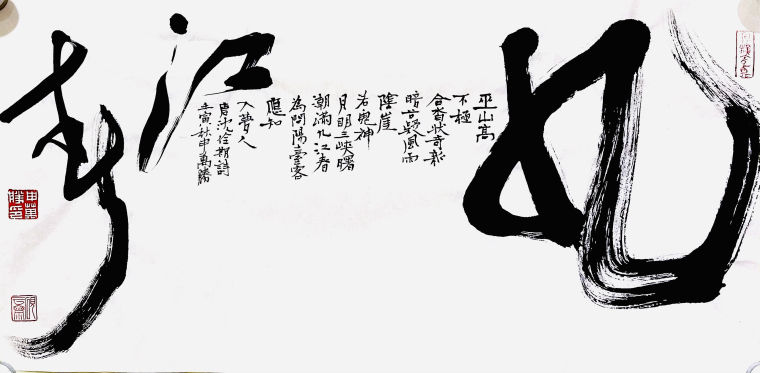 九江春
巫山高
不極
合沓狀奇新
暗谷疑風雨
陰崖
若鬼神
月明三峽曙
潮滿九江春
為問陽臺客
應知
入夢人
唐沈佺期詩
壬寅秋申萬勝
申萬勝印